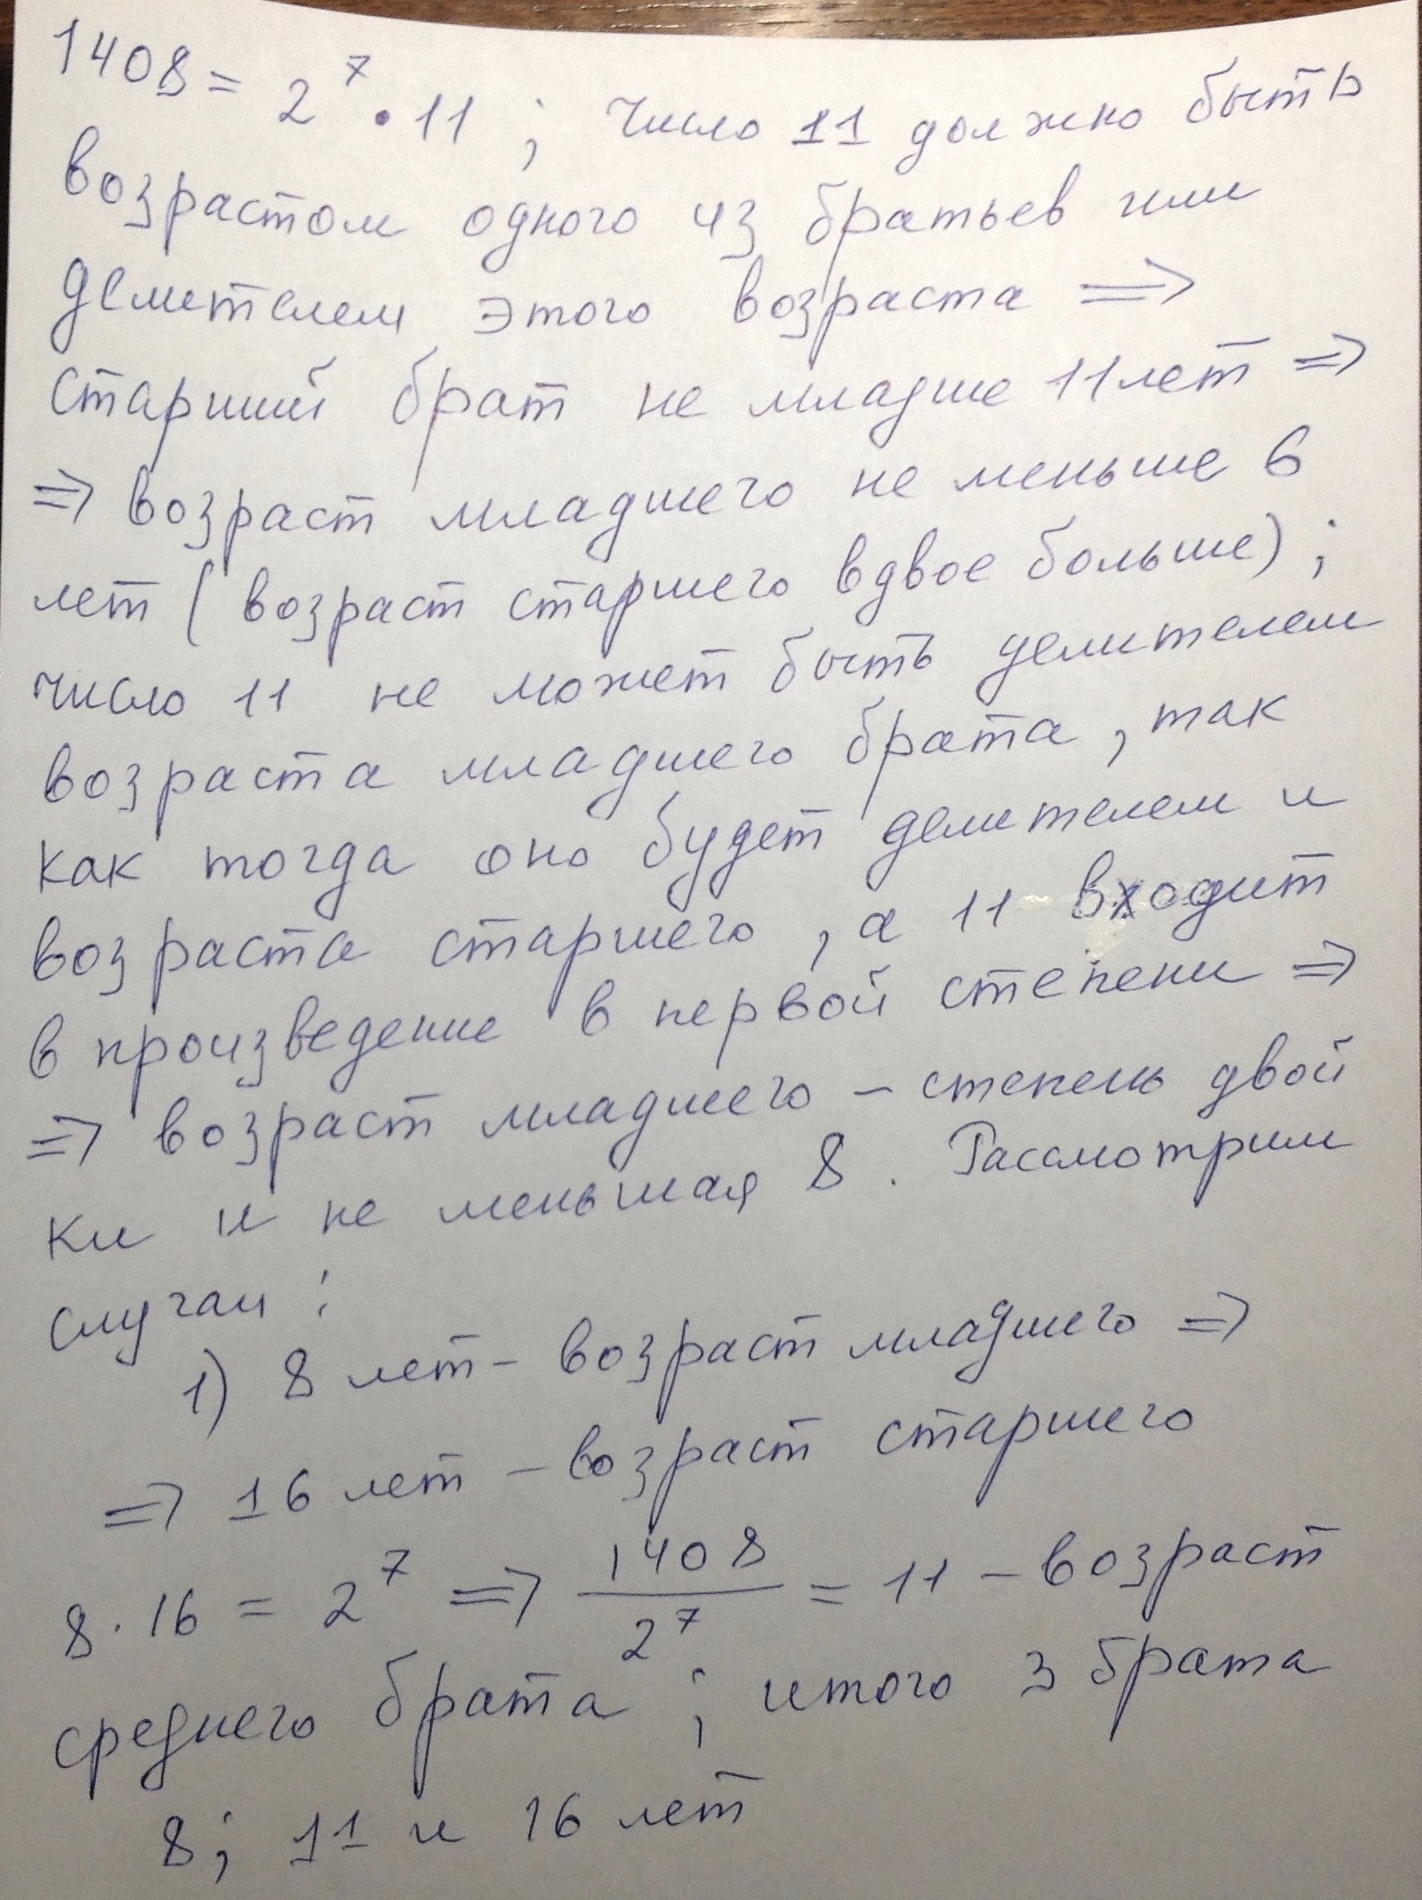 1408 = 2^7 · 11 ; число 11 должно быть
возрастом одного из братьев или
делителем этого возраста =>
старший брат не младше 11 лет =>
=> возраст младшего не меньше 6
лет (возраст старшего вдвое больше) ;
число 11 не может быть делителем
возраста младшего брата, так
как тогда оно будет делителем и
возраста старшего, а 11 входит
в произведение в первой степени =>
=> возраст младшего – степень двой
ки и не меньшая 8. Рассмотрим
случаи :
1) 8 лет – возраст младшего =>
=> 16 лет – возраст старшего
8 · 16 = 2^7 => 1408/2^7 = 11 – возраст
среднего брата ; итого 3 брата
8; 11 и 16 лет